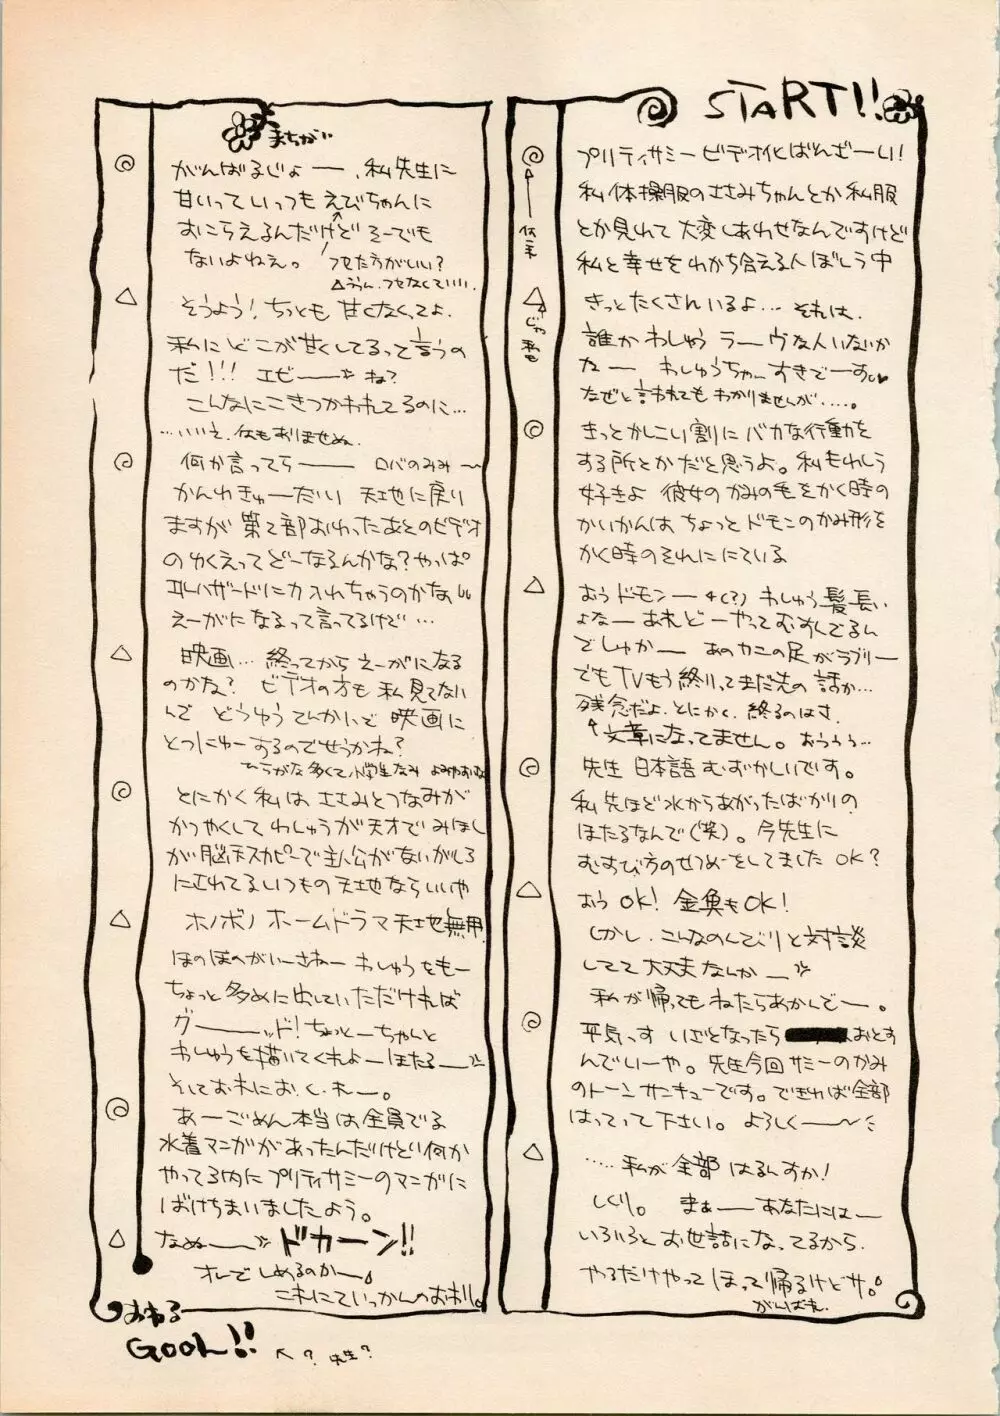 START!!
プリティサミービデオ化ばんざーい!
私体操服のささみちゃんとか私服
とか見れて大変しあわせなんですけど
私と幸せをわかち合える人ぼしう中
きっとたくさんいるよ… それは、
誰かわしゅうラーヴな人いないか
なー わしゅうちゃーすきでーす
なぜと言われてもわかりませんが……。
きっとかしこい割にバカな行動を
する所とかだと思うよ。私もわしう
好きよ 彼女のかみの毛をかく時の
かいかんは、ちょっとドモンのかみ形を
かく時のそれににている
おうドモンー わしゅう髪長い
よなー あれどーやってむすんでるん
でしゅかー あのカニの足がラブリー
でもTVもう終りってまだ先の話か…
残念だよ、とにかく、終るのはさ、
↑文章になってません。おううぅ…
先生 日本語むずかしいです。
私先ほど水からあがったばかりの
ほたるなんで(笑)。今先生に
むすび方のせつめーをしてました OK?
おう OK! 金魚もOK!
しかし、こんなのんびりと対談
してて大丈夫なんかー
私が帰ってもねたらあかんでー。
平気っす いざとなったら おとす
んでいーや。先生今回サミーのかみ
のトーンサンキューです。できれば全部
はってって下さい。よろしくー〜
……私が全部はるんすか!
しくり。 まぁーあなたにはー
いろいろとお世話になってるから、
やるだけやってほって帰るけどサ。
がんばれ
じゃ私も
まちがい
がんばるじょー、私先生に
甘いっていっつもえびちゃんに
おこらえるんだけどそーでも
ないよねぇ。 ふせた方がいい?
△ううん、ふせなくていい。
そうよう!ちっとも甘くなくってよ、
私にどこが甘くしてるって言うの
だ!!! エビーー ね?
こんなにこきつかわれてるのに…
…いいえ、何もありませぬ。
何か言ってらーー ロバのみみ〜
かんわきゅーだい 天地に戻り
ますが第2部おわったあとのビデオ
のゆくえってどーなるんかな?やっぱ
エルハザードに力入れちゃうのかなぁ
えーがになるって言ってるけど…
映画… 終ってからえーがになる
のかな? ビデオの方も私見てない
んで どうゆうてんかいで映画に
とつにゅーするのでせうかね?
ひらがな多くて小学生なみ よみやすいね
とにかく私はささみとつなみが
かつやくしてわしゅうが天才でみほし
が脳天スカピーで主人公がないがしろ
にされてるいつもの天地ならいいや
ホノボノホームドラマ天地無用
ほのぼのがいーさねー わしゅうをもー
ちょっと多めに出していただければ
グーーッド!ちぃとーちゃんと
わしゅうを描いてくれよーほたるー
そしてお木にお・く・れー。
あーごめん本当は全員でる
水着マンガがあったんだけどい何か
やってる内にプリティサミーのマンガに
ばけちまいましたよう。
なぬーー ドカーン!!
オレでしめるのかー。
これにていっかんのおわり。
おわる
GooL!! ← ? 先生?